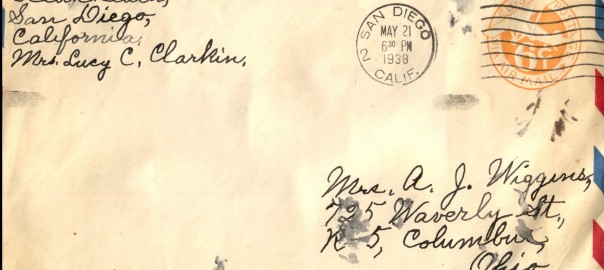 San Diego,
California.
Mrs. Lucy C. Clarkin.
SAN DIEGO
MAY 21
6 30 PM
1938
2 CALIF.
VIA AIR MAIL
6c
Mrs. A. J. Wiggins,
725 Waverly St.,
R-5, Columbus,
Ohio